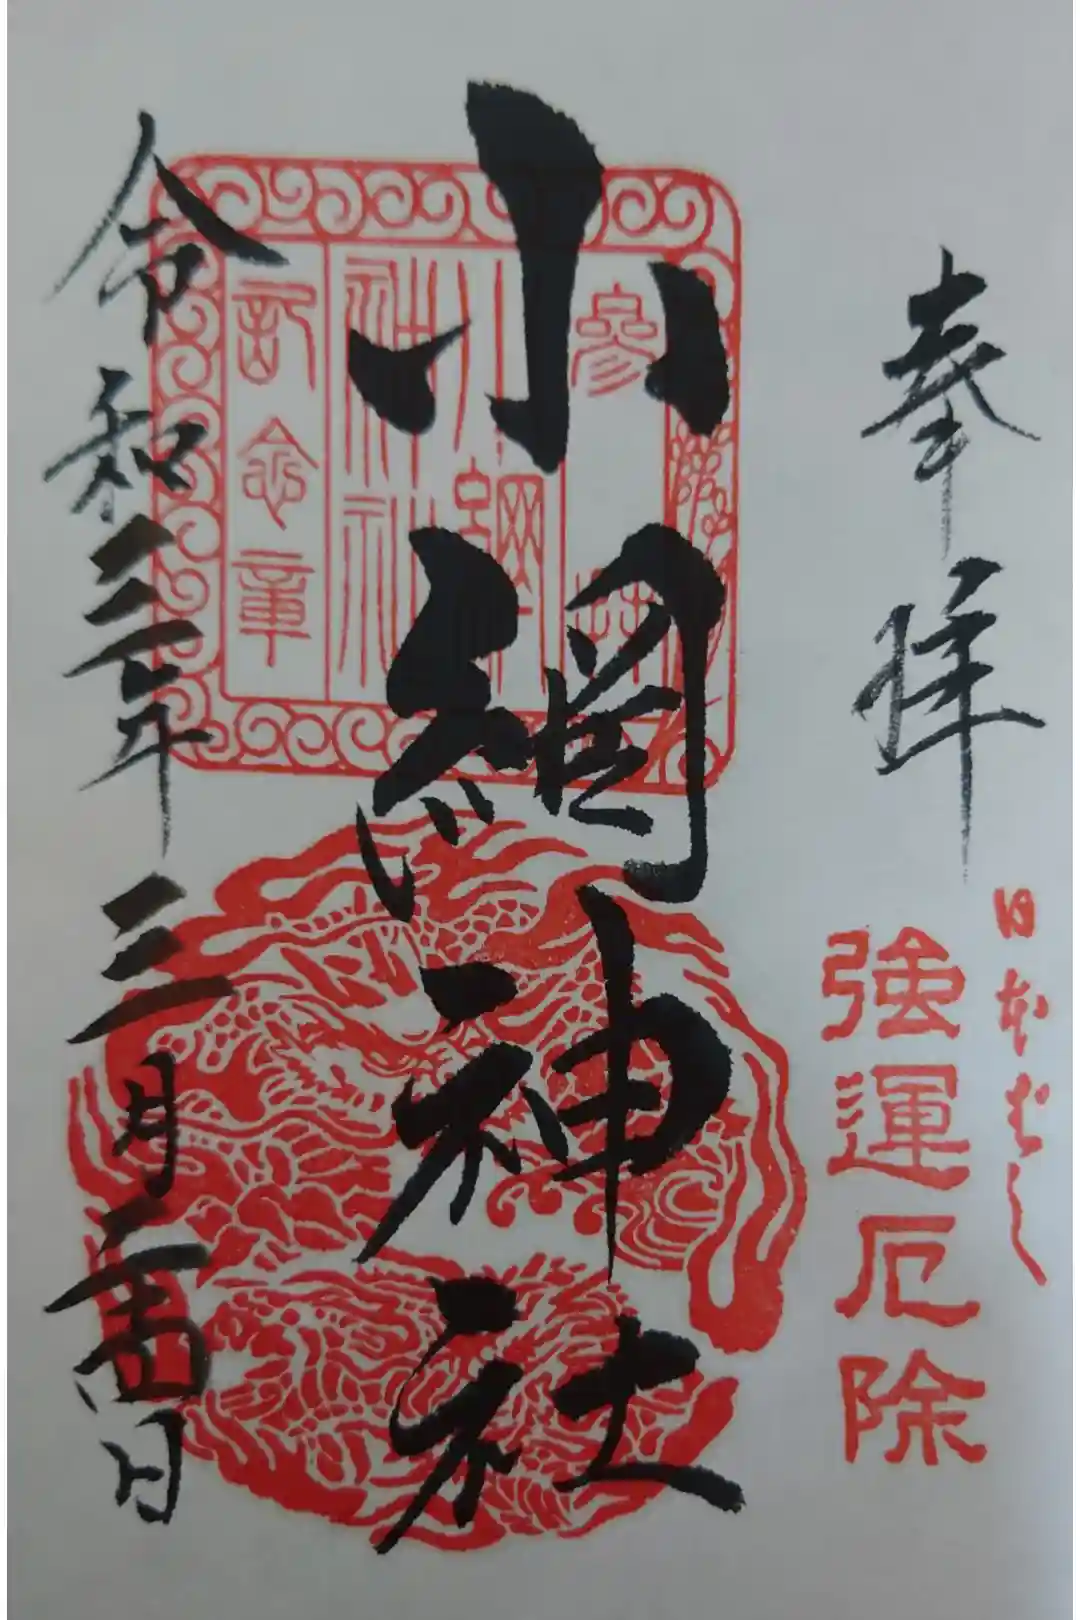 奉拝
日本ばし
強運厄除
小網神社
參拜
小網神社
記念章
令和 年三月 四日